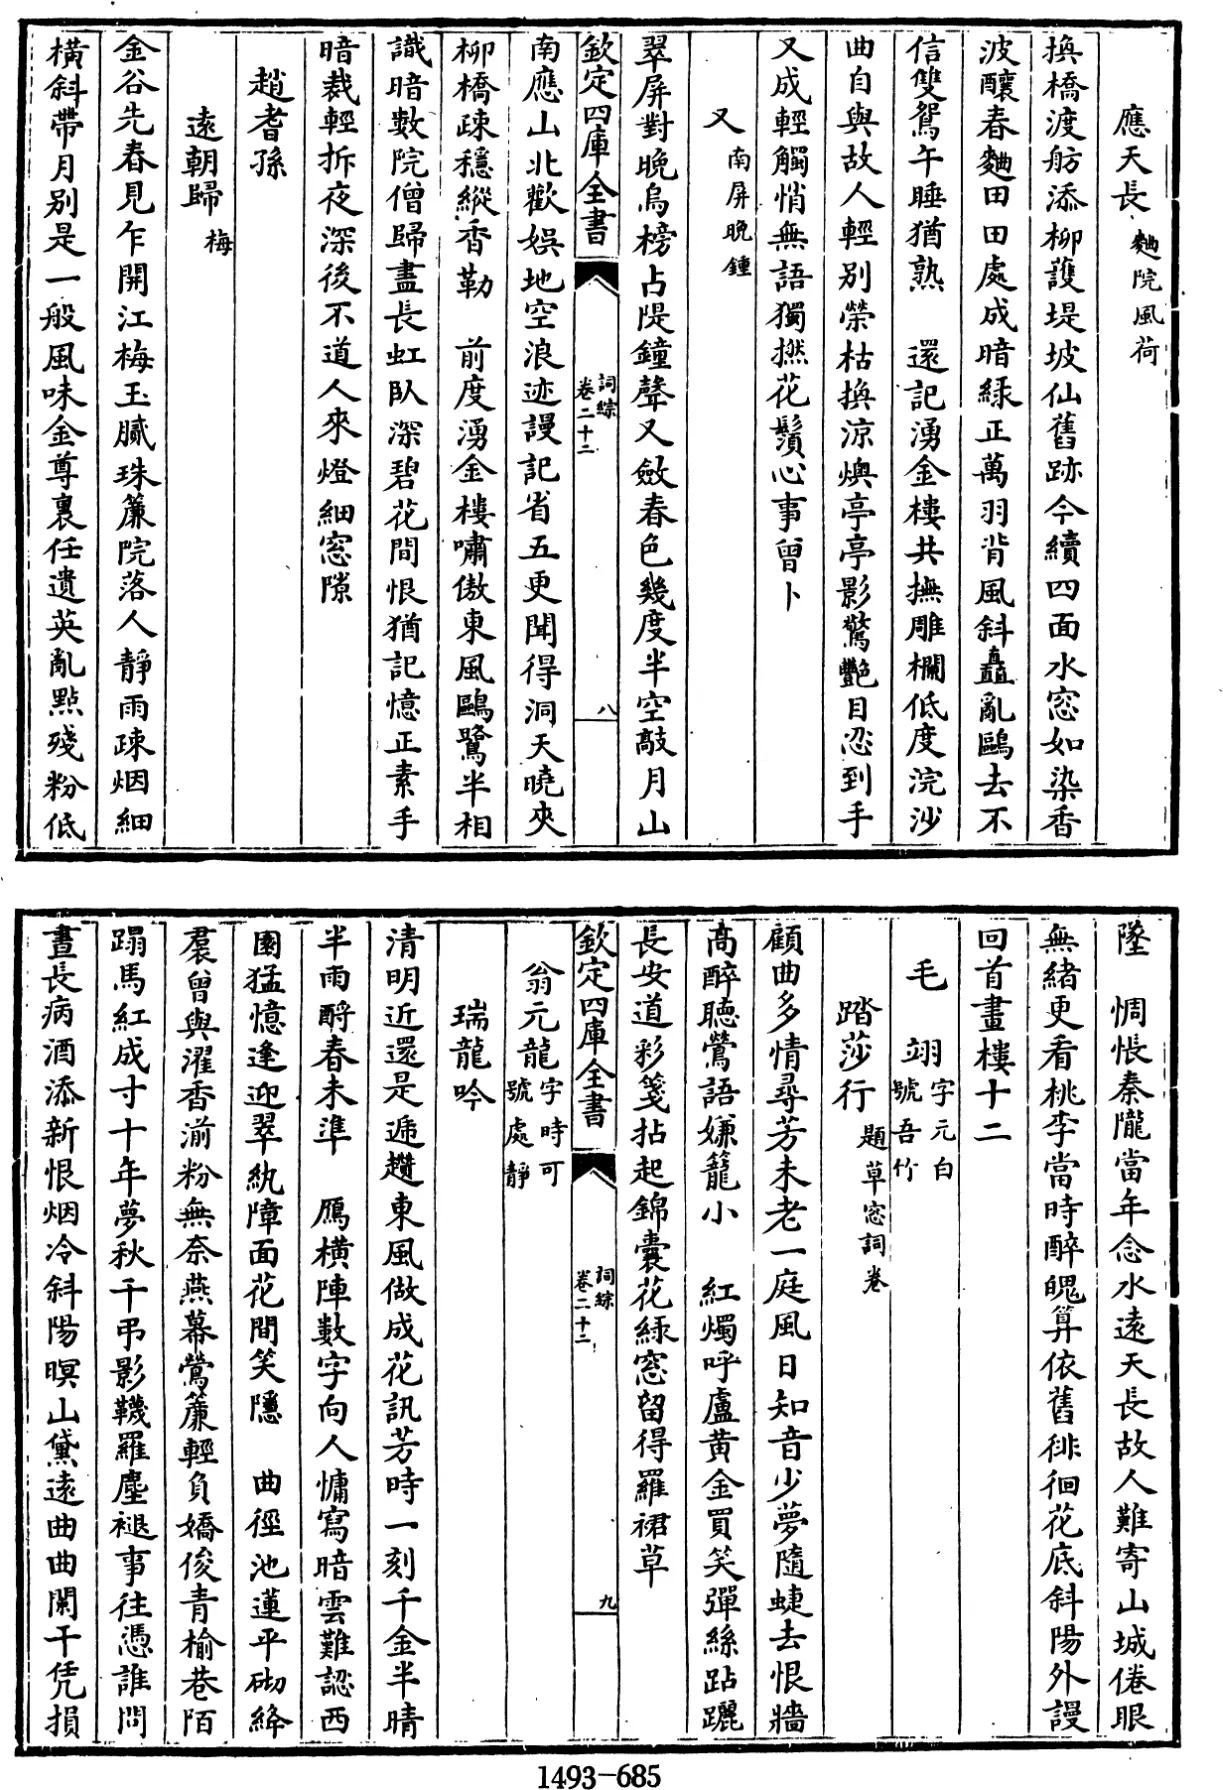 應天長 麯院風荷
換橋渡舫添柳護堤坡仙舊跡今續四面水窓如染香
波釀春麯田田處成暗緑正萬羽背風斜矗亂鷗去不
信雙鴛午睡猶熟　還記湧金樓共撫雕欄低度浣沙
曲自與故人輕别榮枯換凉燠亭亭影驚艷目忍到手
又成輕觸悄無語獨撚花鬚心事曾卜
又 南屏晩鍾
翠屏對晩烏榜占隄鐘聲又斂春色幾度半空敲月山
欽定四庫全書
詞綜
卷二十二
八
南應山北歡娛地空浪迹謾記省五更聞得洞天曉夾
柳橋疎穩縱香勒　前度湧金樓嘯傲東風鷗鷺半相
識暗數院僧歸盡長虹卧深碧花間恨猶記憶正素手
暗裁輕拆夜深後不道人來燈細窓隙
趙耆孫
遠朝歸 梅
金谷先春見乍開江梅玉膩珠簾院落人靜雨疎烟細
横斜帶月别是一般風味金尊裏任遺英亂點殘粉低
墜　惆悵秦隴當年念水遠天長故人難寄山城倦眼
無緒更看桃李當時醉魄算依舊徘徊花底斜陽外謾
回首畫樓十二
毛　翊 字元白
號吾竹
踏莎行 題草窓詞卷
顧曲多情尋芳未老一庭風日知音少夢隨蜨去恨牆
高醉聽鶯語嫌籠小　紅燭呼盧黄金買笑彈絲跕躧
長安道彩箋拈起錦囊花緑窓留得羅裙草
欽定四庫全書
詞綜
卷二十二
九
翁元龍 字時可
號處靜
瑞龍吟
清明近還是遞趲東風做成花訊芳時一刻千金半晴
半雨酧春未準　鴈横陣數字向人慵寫暗雲難認西
園猛憶逢迎翠紈障面花間笑隱　曲徑池蓮平砌絳
裙曾與濯香湔粉無奈燕幕鶯簾輕負嬌俊青榆巷陌
蹋馬紅成寸十年夢秋千弔影韈羅塵褪事往憑誰問
晝長病酒添新恨烟冷斜陽暝山黛遠曲曲闌干凭損
1493-685